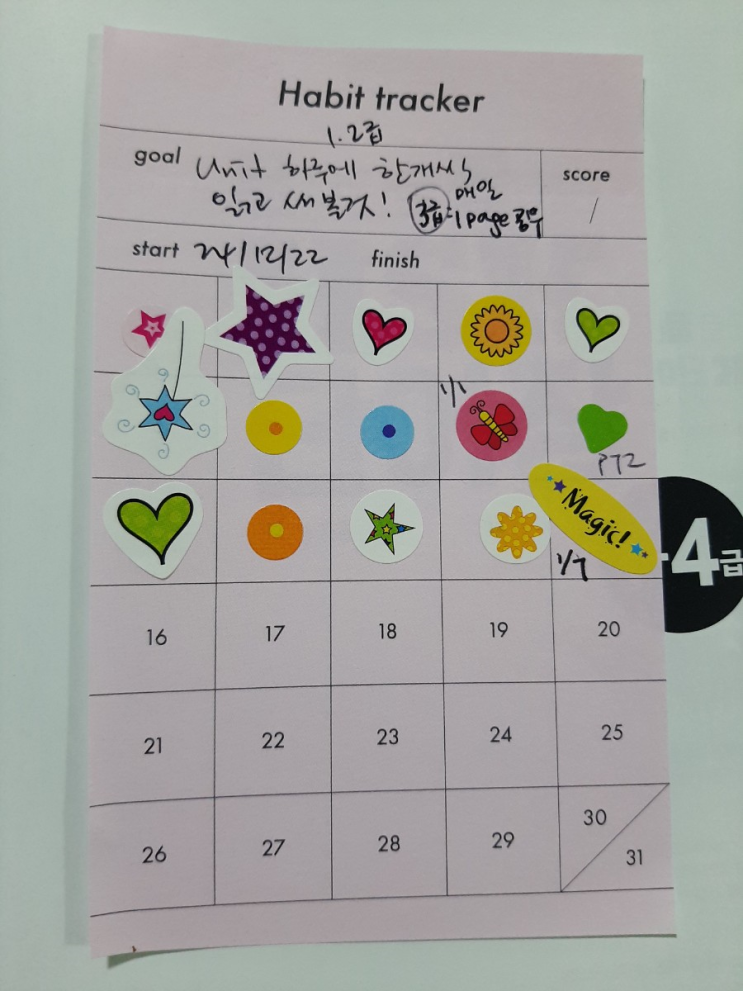 Habit tracker
1.2급
goal Unit 하루에 한개씩 score
읽고 써볼것! 3급: 매일 1page 공부 /
start 24/12/22 finish
1/1
P72
Magic!
1/7
4급
16 17 18 19 20
21 22 23 24 25
26 27 28 29 30
31